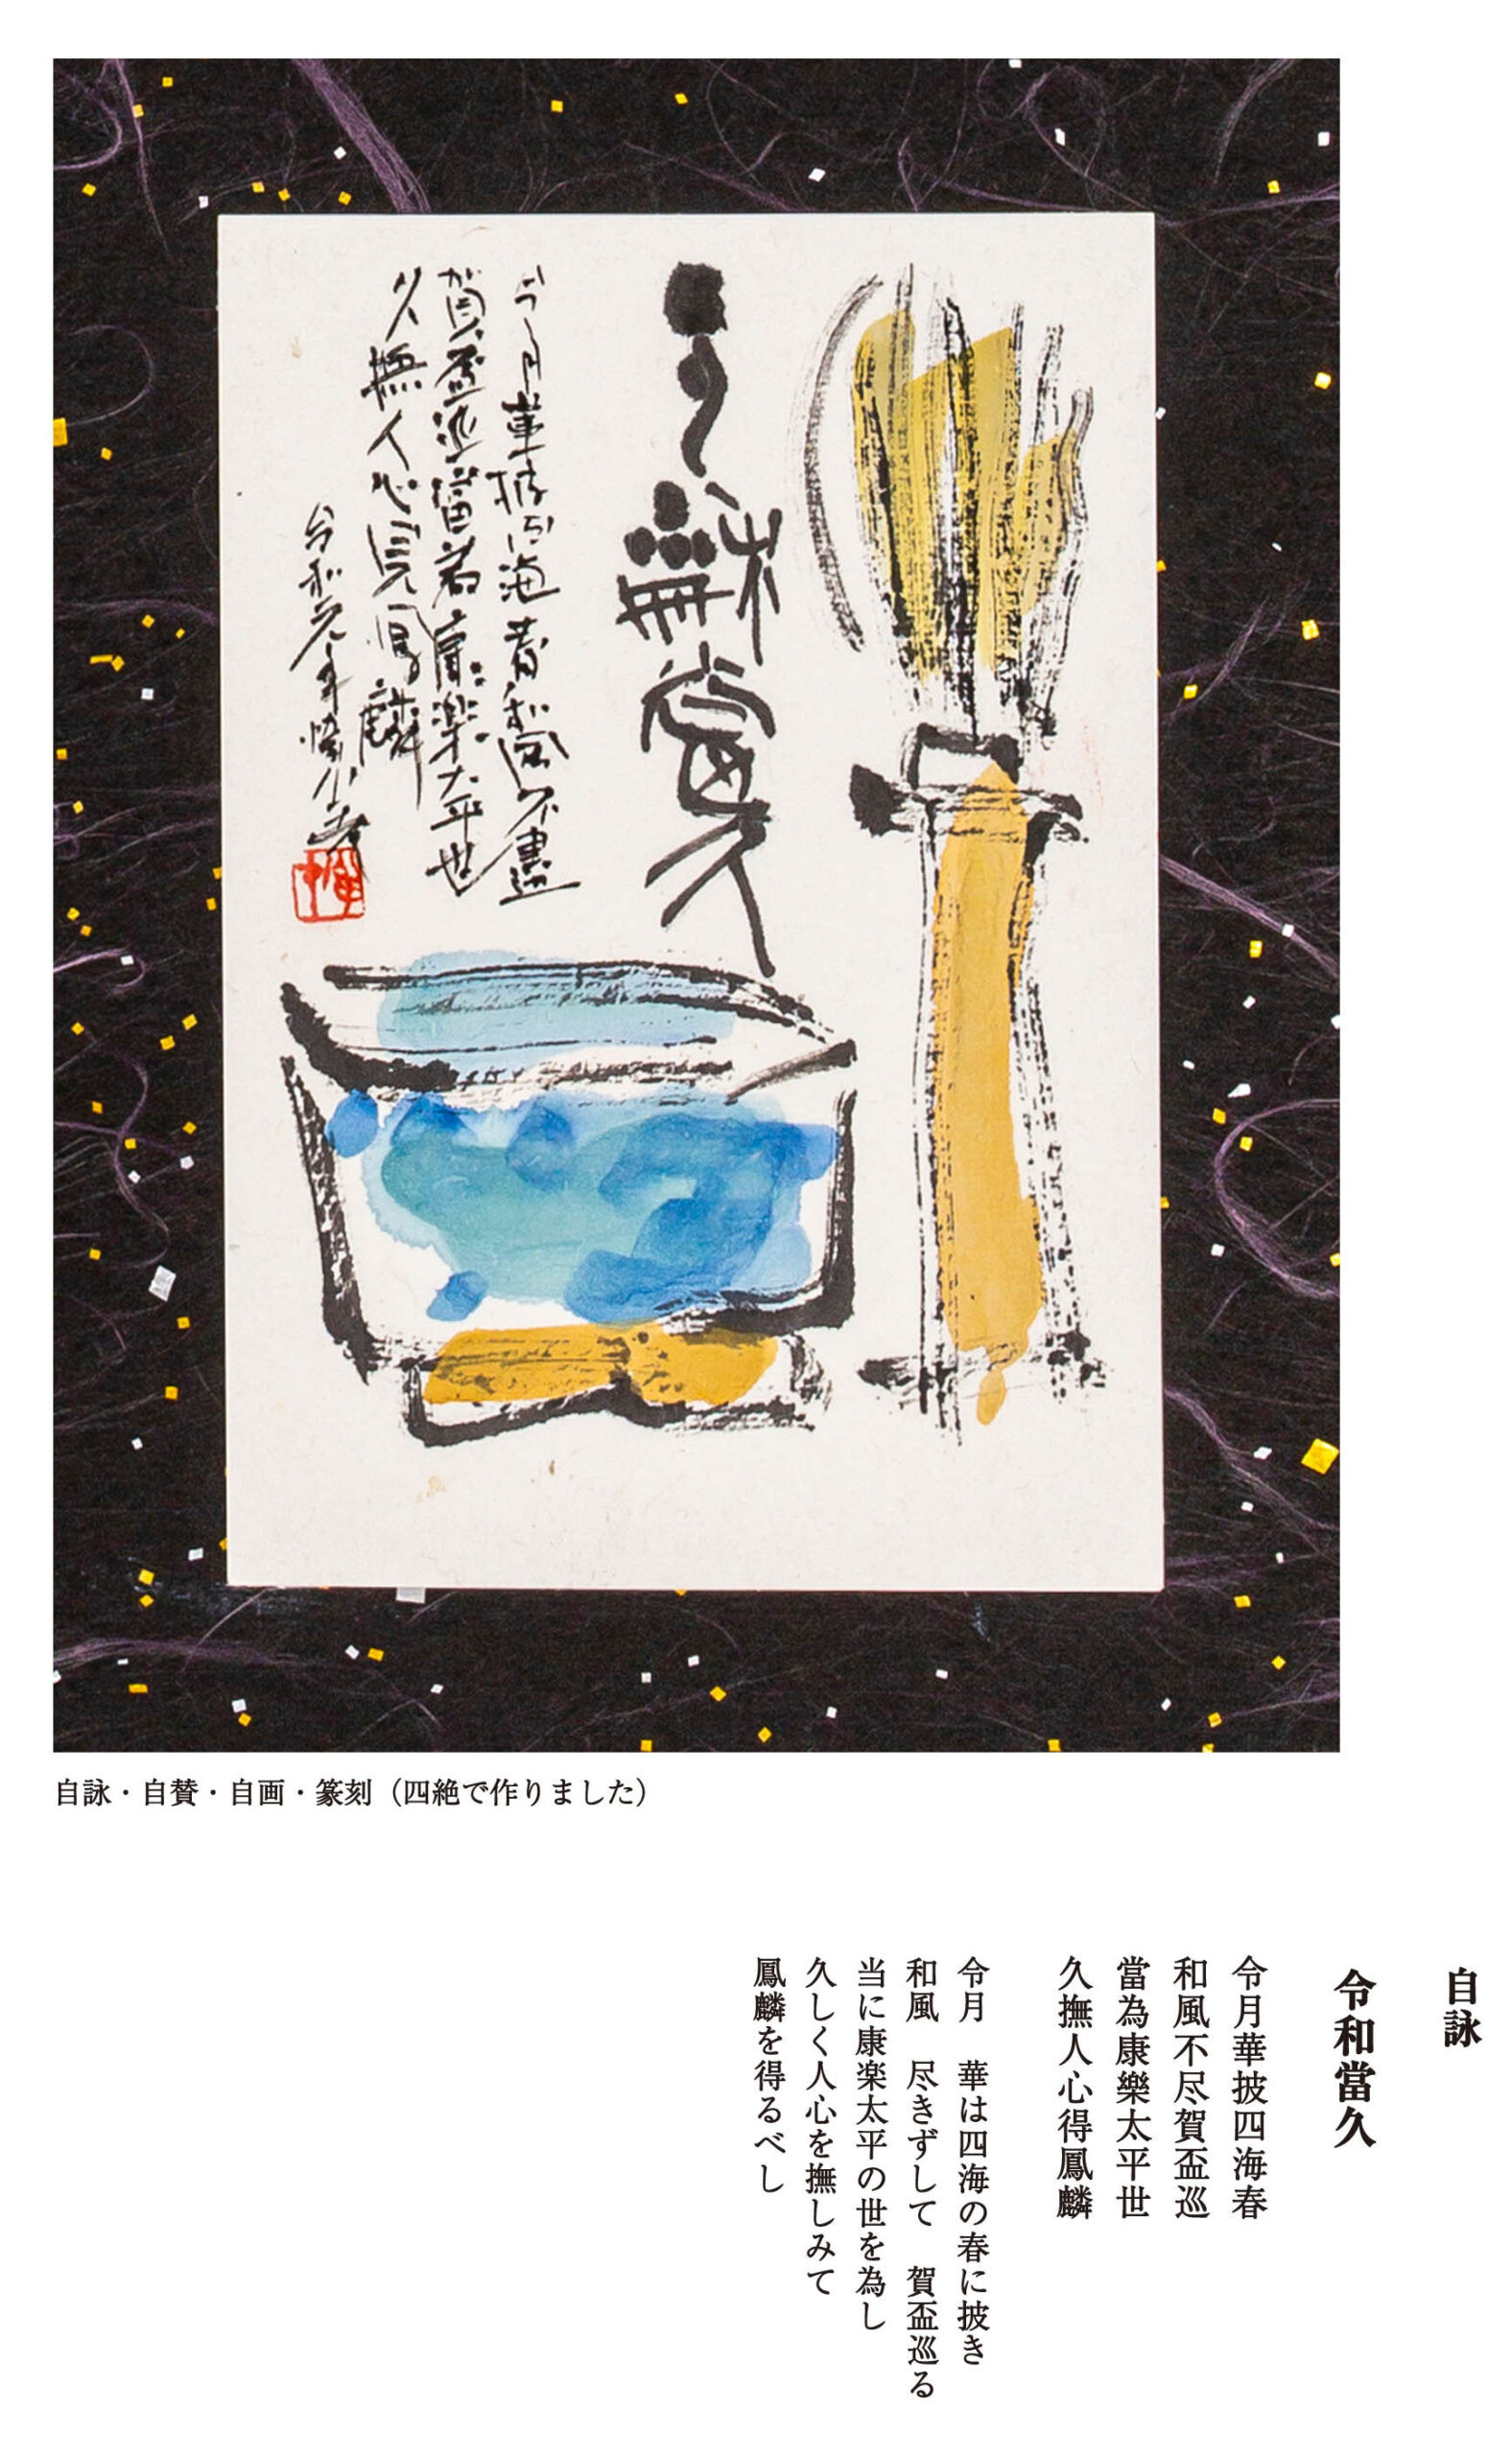 令龢當久
令月華披四海春和風不盡
賀盃巡當為康楽太平世
久撫人心得鳳麟
令和元年
自詠・自賛・自画・篆刻（四絶で作りました）
自詠
令和當久
令月華披四海春
和風不尽賀盃巡
當為康樂太平世
久撫人心得鳳麟
令月　華は四海の春に披き
和風　尽きずして　賀盃巡る
当に康楽太平の世を為し
久しく人心を撫しみて
鳳麟を得るべし